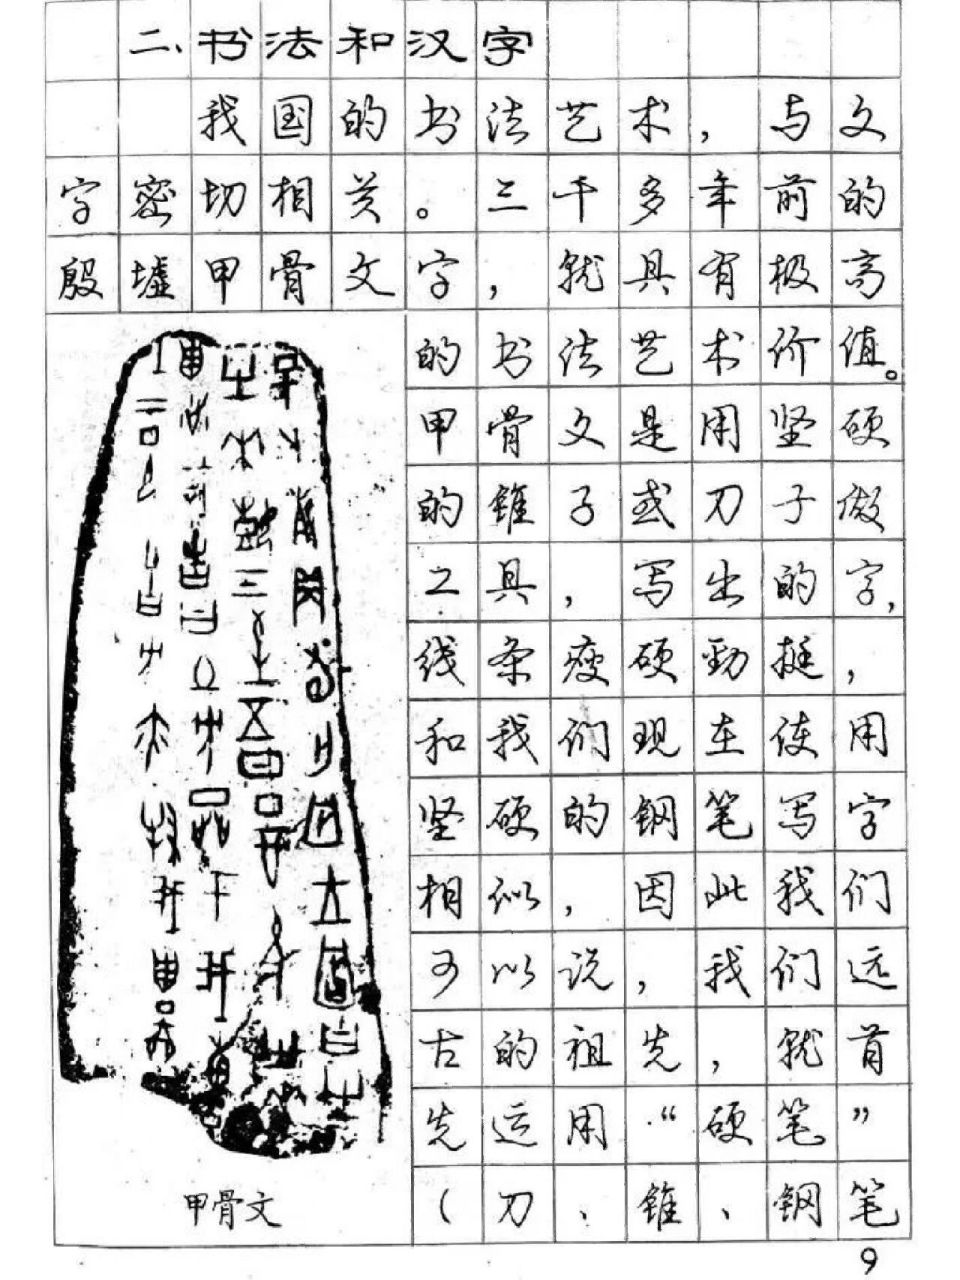 二、书法和汉字
我国的书法艺术，与文
字密切相关。三千多年前的
殷墟甲骨文字，就具有极高
的书法艺术价值。
甲骨文是用坚硬
的锥子或刀子做
工具，写出的字，
线条瘦硬劲挺，
和我们现在使用
坚硬的钢笔写字
相似，因此我们
可以说，我们远
古的祖先，就首
先运用“硬笔”
（刀、锥、钢笔
甲骨文
9